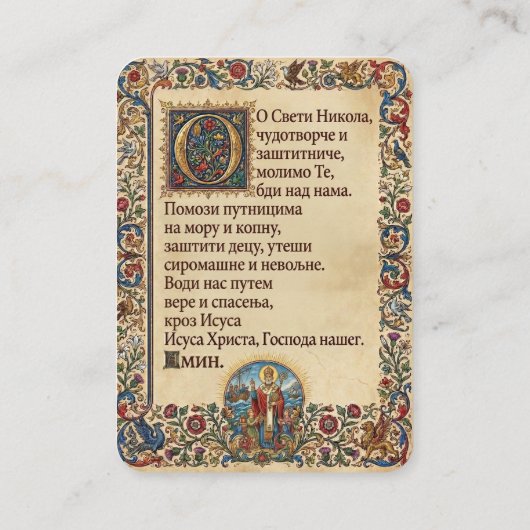 О О Свети Никола,
чудотворче и
заштитниче,
молимо Те,
бди над нама.
Помози путницима
на мору и копну,
заштити децу, утеши
сиромашне и невољне.
Води нас путем
вере и спасења,
кроз Исуса
Исуса Христа, Господа нашег.
Амин.